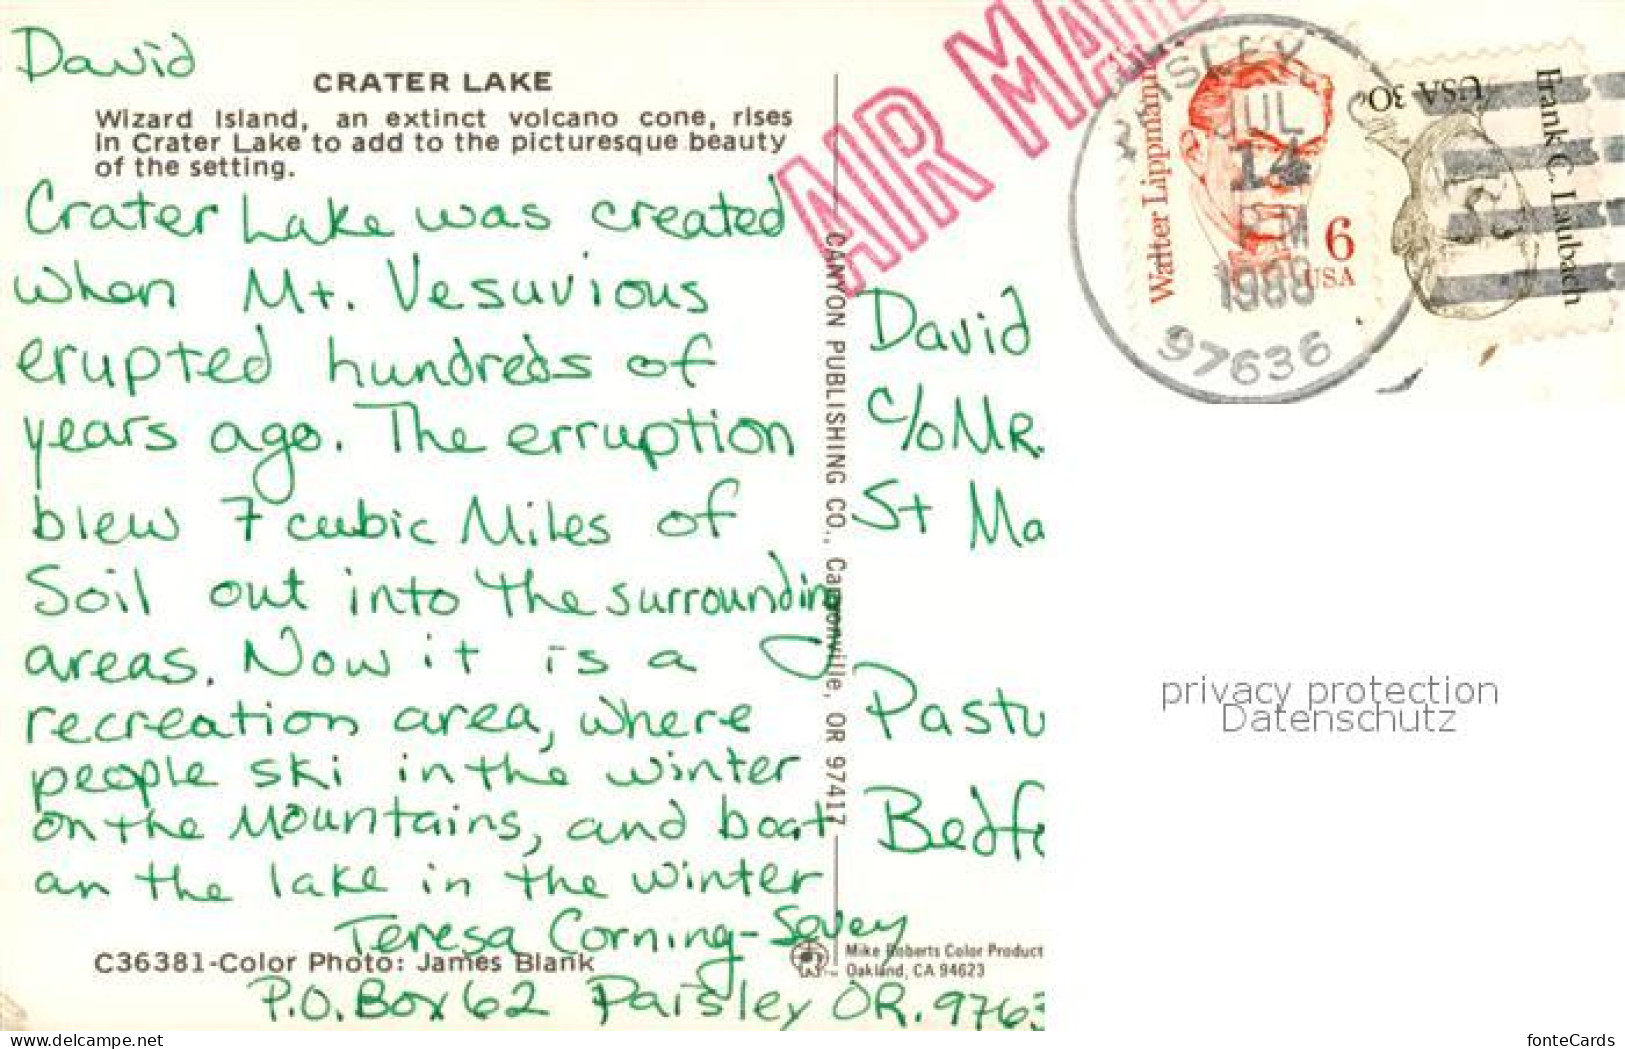 David
CRATER LAKE
Wizard Island, an extinct volcano cone, rises
in Crater Lake to add to the picturesque beauty
of the setting.
Crater Lake was created
when Mt. Vesuvious
erupted hundreds of
years ago. The erruption
blew 7 cubic Miles of
Soil out into the surrounding
areas. Now it is a
recreation area, where
people ski in the winter
on the Mountains, and boat
an the lake in the winter
Teresa Corning-Sovey
C36381-Color Photo: James Blank
P.O. Box 62 Paisley OR. 9763
CANYON PUBLISHING CO., Canyonville, OR 97417
AIR MAIL
PAISLEY,
JUL
14
PM
1988
97636
Walter Lippmann
6
USA
USA 30
Frank C. Laubach
David
c/o MR.
St Ma
Pastu
Bedf
Mike Roberts Color Product
Oakland, CA 94623
privacy protection
Datenschutz
www.delcampe.net
fonteCards